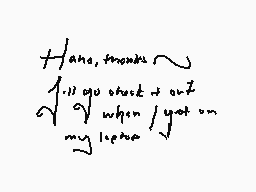 Haha, thanks ~
I'll go check it out
when I get on
my laptop